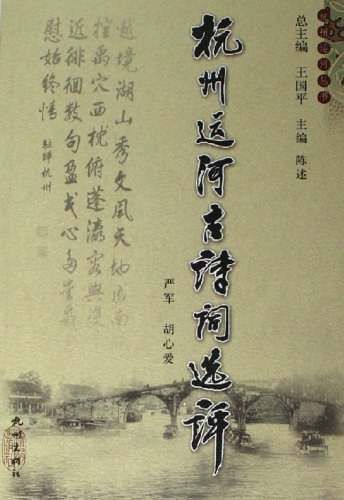 杭州运河丛书
总主编 王国平 主编 陈述
杭州运河古诗词选评
严军 胡心爱
越境湖山秀文风天地成南
控禹穴西枕俯蓬瀛容与漫
近徘徊数句盈戈心多
慰始终情
驻跸杭州
杭州出版社